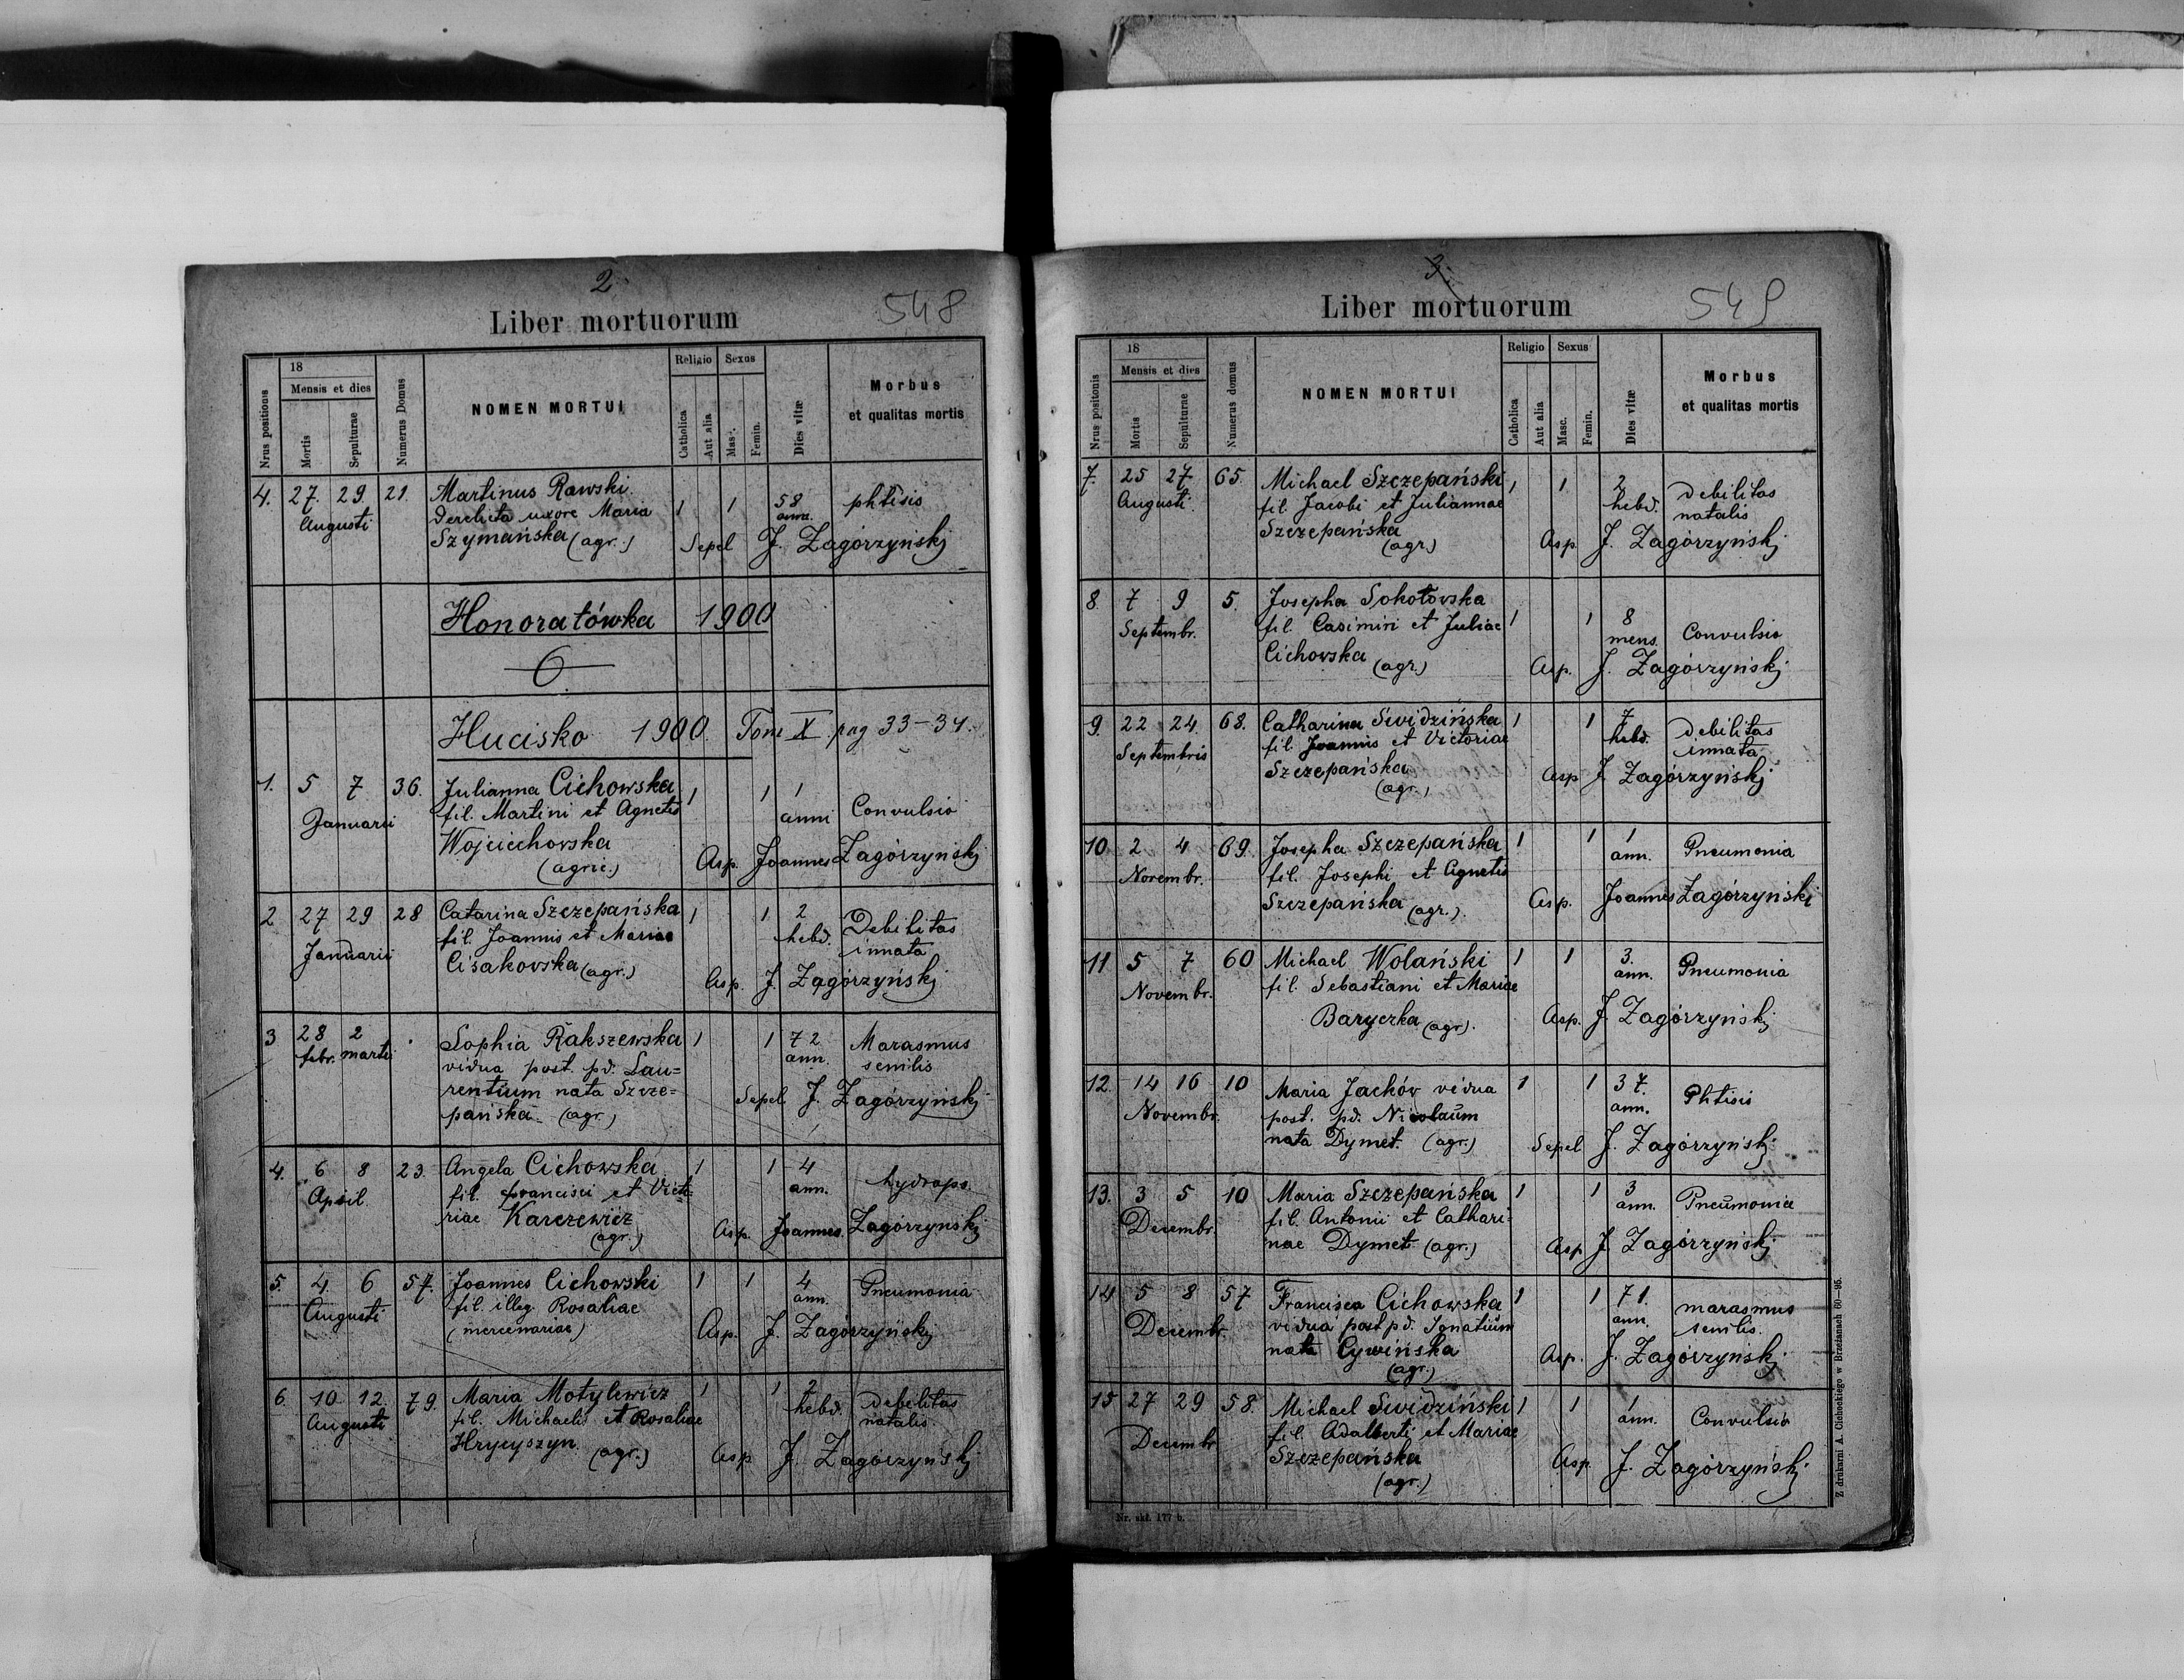 2.
548
Liber mortuorum
Nrus positionis
18
Mensis et dies
Mortis
Sepulturae
Numerus Domus
NOMEN MORTUI
Religio
Catholica
Aut alia
Sexus
Mas.
Femin.
Dies vitæ
Morbus
et qualitas mortis
4. 27. 29. 21. Martinus Rawski 1 1 58 phtisis
Augusti derelicta uxore Maria anna.
Szymańska (agr.) Sepel J. Zagórzyński
Honoratówka 1900
0
Hucisko 1900 Tom X pag 33-34.
1. 5 7 36. Julianna Cichowska 1 1 1 Convulsio
Januarii fil. Martini et Agnetis anni
Wojciechovska
(agric.) Asp. Joannes Zagórzyński
2 27 29 28 Catarina Szczepańska 1 1 2 Debilitas
Januarii fil. Joannis et Mariae hebd. innata
Cisakovska (agr.) Asp. J. Zagórzyński
3 28 2 Sophia Rakszewska 1 1 72 Marasmus
febr. martii vidua post. pd. Lau= ann. senilis
rentium nata Szcze= Sepel J. Zagórzyński
pańska (agr.)
4. 6 8 23. Angela Cichowska 1 1 4 hydrops.
April. fil. Francisci et Victo- ann.
riae Karczewicz
(agr.) Asp. Joannes Zagórzyński
5. 4. 6 57. Joannes Cichowski 1 1 4 Pneumonia
Augusti fil. illeg. Rosaliae ann.
(mercenariae) Asp. J. Zagórzyński
6. 10. 12. 79. Maria Motylewicz 1 1 2 debilitas
Augusti fil. Michaeli et Rosaliae hebd. natalis.
Hrycyszyn (agr.) Asp J. Zagórzyński
3.
549
Liber mortuorum
Nrus positonis
18
Mensis et dies
Mortis
Sepulturae
Numerus domus
NOMEN MORTUI
Religio
Catholica
Aut alia
Sexus
Masc.
Femin.
Dies vitæ
Morbus
et qualitas mortis
7. 25 27. 65. Michael Szczepański 1 1 2 debilitas
Augusti. fil. Jacobi et Juliannae hebd. natalis
Szczepańska
(agr.) Asp J. Zagórzyński
8. 7 9. 5. Josepha Sokołovska 1 1 8 Convulsio
Septembr. fil. Casimiri et Juliae mens.
Cichovska (agr.) Asp. J. Zagórzyński
9. 22 24. 68. Catharina Swidzińska 1 1 7 debilitas
Septembris fil. Joannis et Victoriae hebd. innata
Szczepańska
(agr.) Asp J. Zagórzyński
10. 2 4 69. Josepha Szczepańska 1 1 1 Pneumonia
Novembr. fil. Josephi et Agnetis ann.
Szczepańska (agr.). Asp. Joannes Zagórzyński
11 5 7 60 Michael Wolański 1 1 3. Pneumonia
Novembr. fil. Sebastiani et Mariae ann.
Baryczka (agr). Asp. J. Zagórzyński
12. 14 16 10 Maria Jachów vidua 1 1 37. Phtisis
Novembr. post. pd. Nicolaum ann.
nata Dymet. (agr.) Sepel J. Zagórzyński
13. 3 5 10 Maria Szczepańska 1 1 3 Pneumonia
Decembr. fil. Antonii et Cathari- ann.
nae Dymet (agr.) Asp J. Zagórzyński
14 5 8 57 Francisca Cichowska 1 1 71. marasmus
Decembr. vidua post pd. Ignatium ann. senilis.
nata Cywińska
(agr.) Asp. J. Zagórzyński
15 27 29 58. Michael Swidziński 1 1 1 Convulsio
Decembr fil. Adalberti et Mariae ann.
Szczepańska
(agr.) Asp. J. Zagórzyński
Nr. skł. 177 b.
Z drukarni A. Cichockiego w Brzeżanach 60—95.